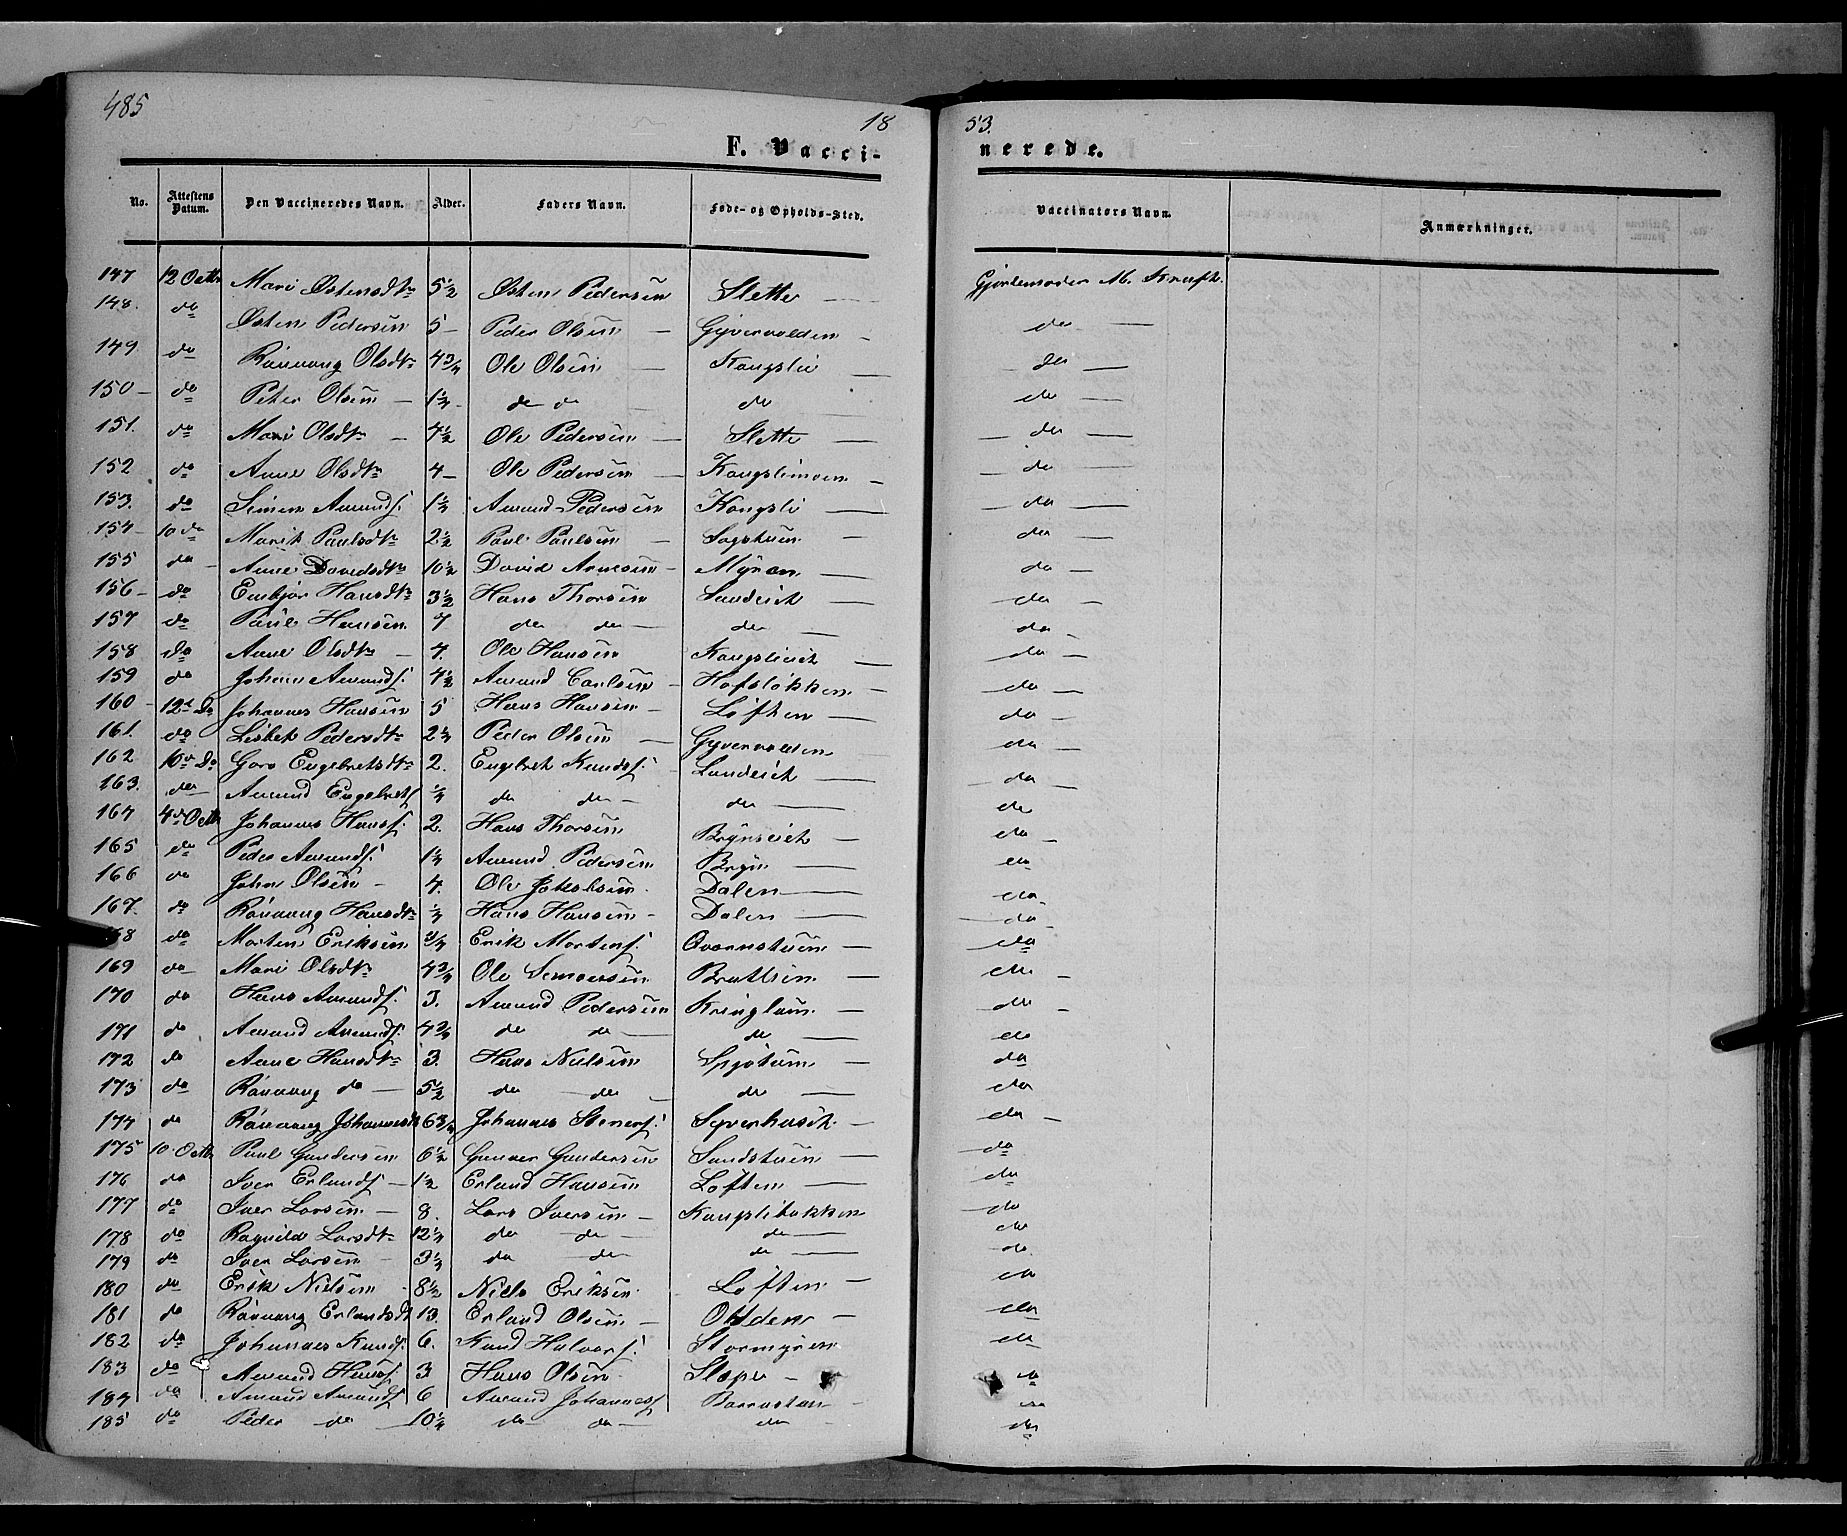 485
18 53.
F. Vaccinerede.
No. Attestens Datum. Den Vaccineredes Navn. Alder. Faders Navn. Føde- og Opholds-Sted. Vaccinators Navn. Anmærkninger.
147 12 Octbr Mari Østensdtr 5 1/2 Østen Pedersen Slette Gjordemoder M. Kraft.
148. do Østen Pedersen 5 Peder Olsen do
149 do Rønnaug Olsdtr 4 3/4 Ole Olsen Kongsli do
150 do Peter Olsen 1 1/4 do do do do
151. do Mari Olsdtr 4 1/2 Ole Pedersen Slette do
152 do Anne Olsdtr 4 Ole Pedersen Kongslimoen do
153. do Simen Amunds. 1 1/4 Amund Pedersen Kongsli do
154 10 do Marit Paulsdtr 2 1/2 Paul Paulsen Sagstuen do
155 do Anne Davidsdtr 10 1/2 David Arnesen Myren do
156 do Embjør Hansdtr 3 1/2 Hans Thorsen do
157 do Paul Hansen 7 do do do do
158 do Anne Olsdtr 4. Ole Hansen Kongslieie do
159 do Johan Amunds. 4 1/2 Amund Carlsen Hofsløkken do
160 12 do Johannes Hansen 5 Hans Hansen Løften do
161. do Lisbet Pedersdtr 2 1/4 Peder Olsen do
162 10 do Goro Engebretsdtr 2. Engebret Knuds. do
163. do Amund Engebrets. 1/4 do do do do
164 4 Octbr Johannes Hans. 2. Hans Thorsen Bryneie do
165 do Peder Amunds. 1 1/4 Amund Pedersen Bryn do
166 do John Olsen 4. Ole Jakobsen Dalen do
167. do Rønnaug Hansdtr 1/4 Hans Hansen Dalen do
168 do Morten Eriksen 3/4 Erik Mortens. Qvernstuen do
169 do Mari Olsdtr 4 3/4 Ole Bratlien do
170 do Hans Amunds. 3. Amund Pedersen Kringlum do
171 do Amund Amunds. 4 3/4 do do do do
172 do Anne Hansdtr 3. Hans Nielsen do
173 do Rønnaug do 5 1/2 do do do do
174 do Rønnaug Johannesdtr 6 3/4 Johannes Steners. do
175 10 Octbr Paul Gundersen 6 1/2 Gunder Gundersen Sandstuen do
176 do Iver Erlands. 1 1/2 Erland Hansen Løften do
177 do Iver Larsen 8. Lars Iversen Kongslibakken do
178 do Ragnild Larsdtr 12 1/4 do do do do
179 do Iver Larsen 3 1/4 do do do do
180 do Erik Nielsen 8 1/2 Niels Eriksen Løften do
181 do Rønnaug Erlandsdtr 13. Erland Olsen do
182 do Johannes Knuds. 6. Knud Halvors. Stormyren do
183 do Amund Hans. 3 Hans Olsen do
184 do Amund Amunds. 6 Amund Johannes. do
185 do Peder do 10 1/4 do do do do